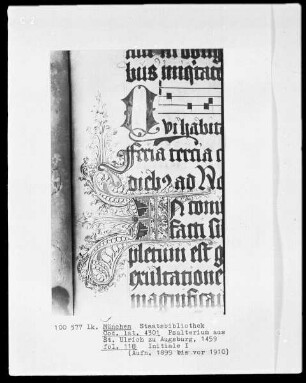 bus iniqitate
Qui habit
feria tercia
dieb⁹ ad No
In conu
facti su
plenum est g
exultatione
magnificau
100 977 lk. München Staatsbibliothek
Cod. lat. 4301 Psalterium aus
St. Ulrich zu Augsburg, 1459
fol. 118 Initiale I
[Aufn. 1899 bis vor 1910]